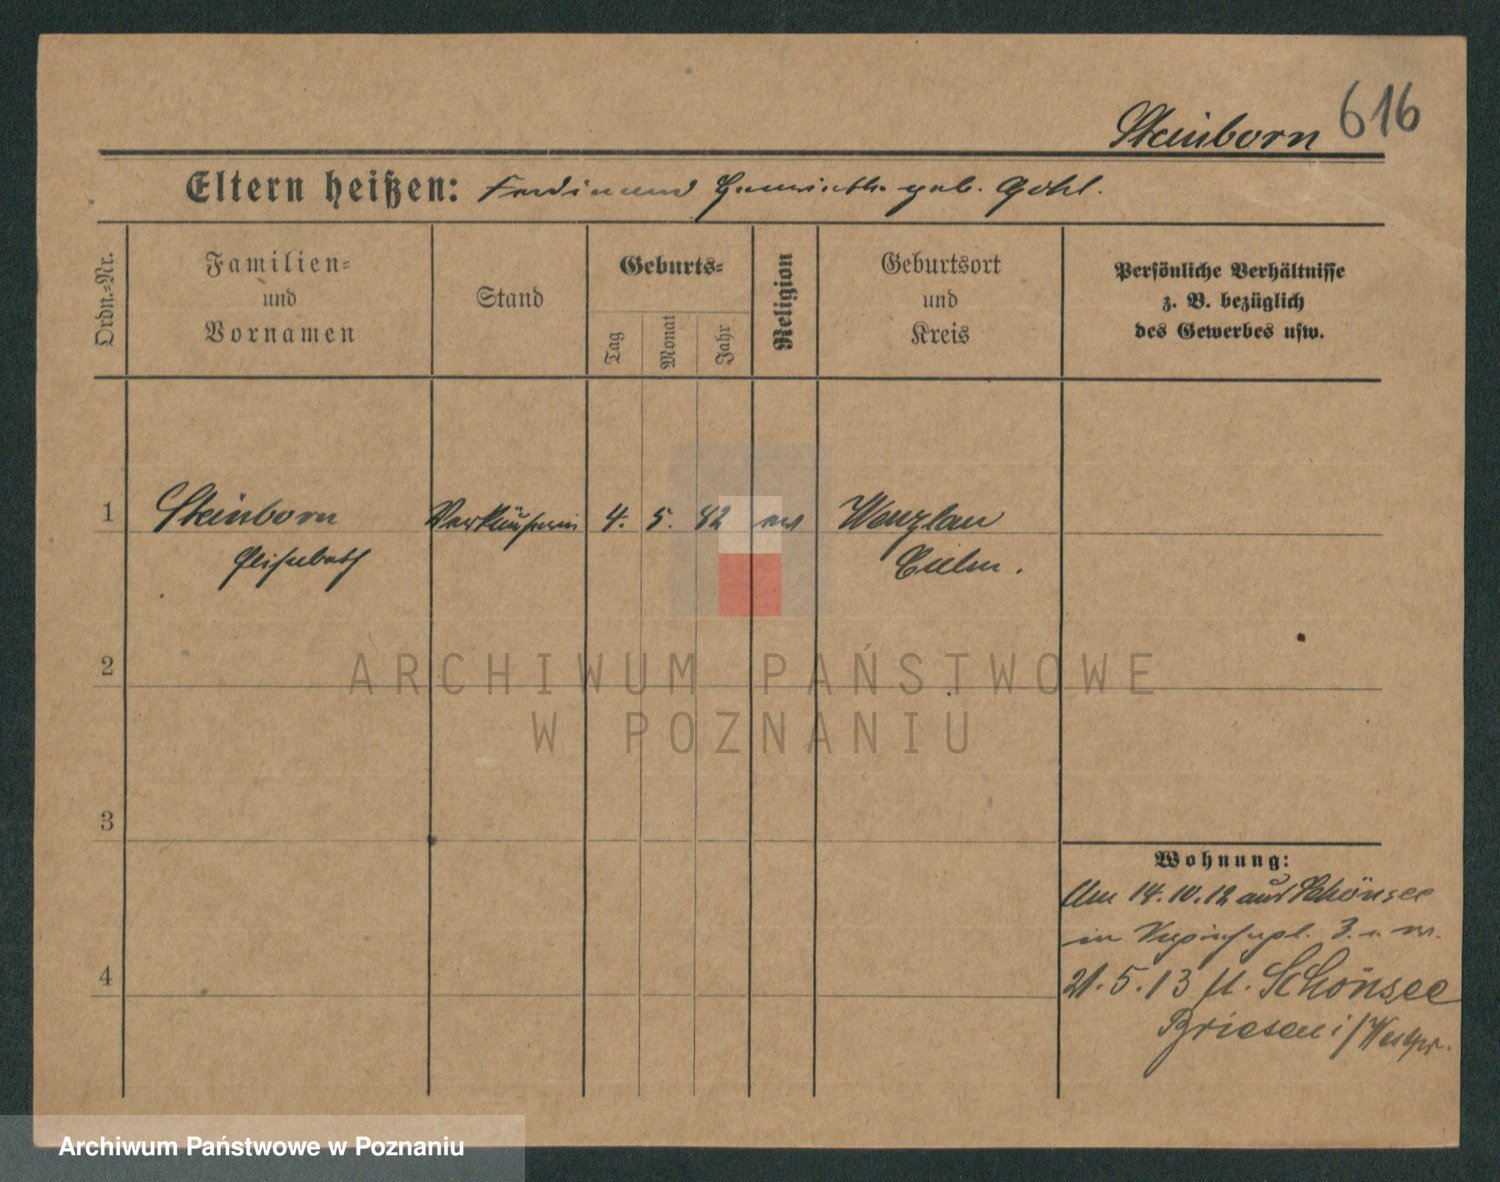 Steinborn 616
Eltern heißen: Ferdinand geb. Gohl.
Ordn.-Nr.
Familien-
und
Vornamen
Stand
Geburts-
Tag
Monat
Jahr
Religion
Geburtsort
und
Kreis
Persönliche Verhältnisse
z. B. bezüglich
des Gewerbes usw.
1 Steinborn Verkäuferin 4. 5. 82 ev Wenzlau
Elisabeth Culm.
2
3
4
Wohnung:
Am 14.10.12 aus Schönsee
in 3.
21.5.13 n. Schönsee
Briesen i/Westpr.
ARCHIWUM PAŃSTWOWE
W POZNANIU
Archiwum Państwowe w Poznaniu